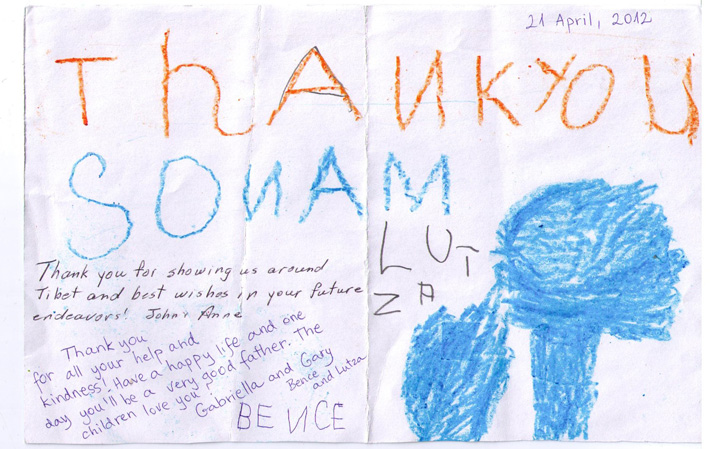 21 April, 2012
THANKYOU
SONAM
LUT
ZA
Thank you for showing us around
Tibet and best wishes in your future
endeavors! John & Anne
Thank you
for all your help and
kindness! Have a happy life and one
day you'll be a very good father. The
children love you!
Gabriella and Gary
Bence
and Lutza
BENCE